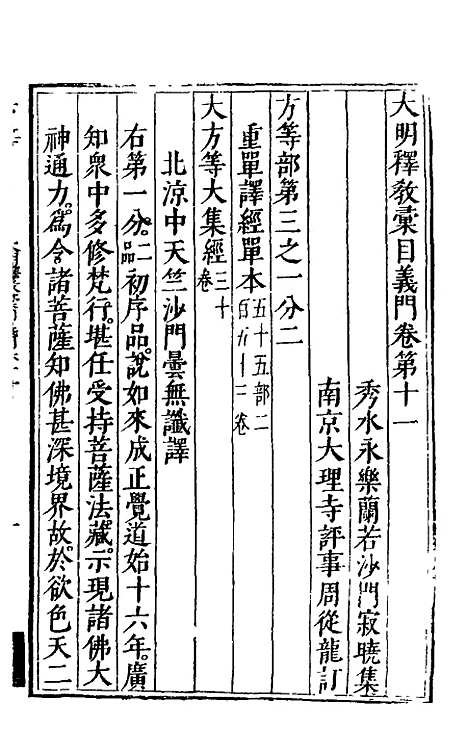 大明釋教彙目義門卷第十一
秀水永樂蘭若沙門寂曉集
南京大理寺評事周從龍訂
方等部第三之一分二
重單譯經單本五十五部二百九十三卷
大方等大集經三十卷
北涼中天竺沙門曇無讖譯
右第一分。二品初序品。說如來成正覺道始十六年。廣
知衆中多修梵行。堪任受持菩薩法藏。示現諸佛大
神通力。爲令諸菩薩知佛甚深境界故。於欲色天二